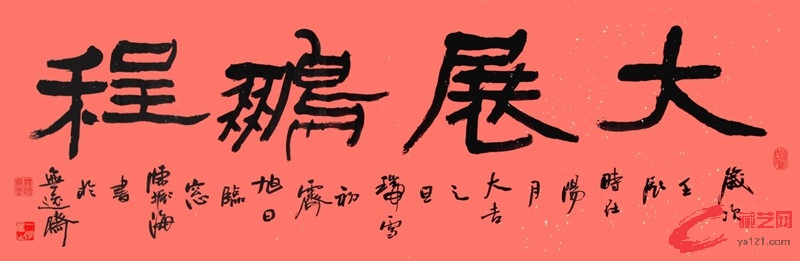 大展鹏程
歲次
壬辰
時在
陽
月
大吉
之
日
瑞雪
初
霽
旭日
臨
窓
陳振海
書
於
無逸齋
藏艺网
ys121.com